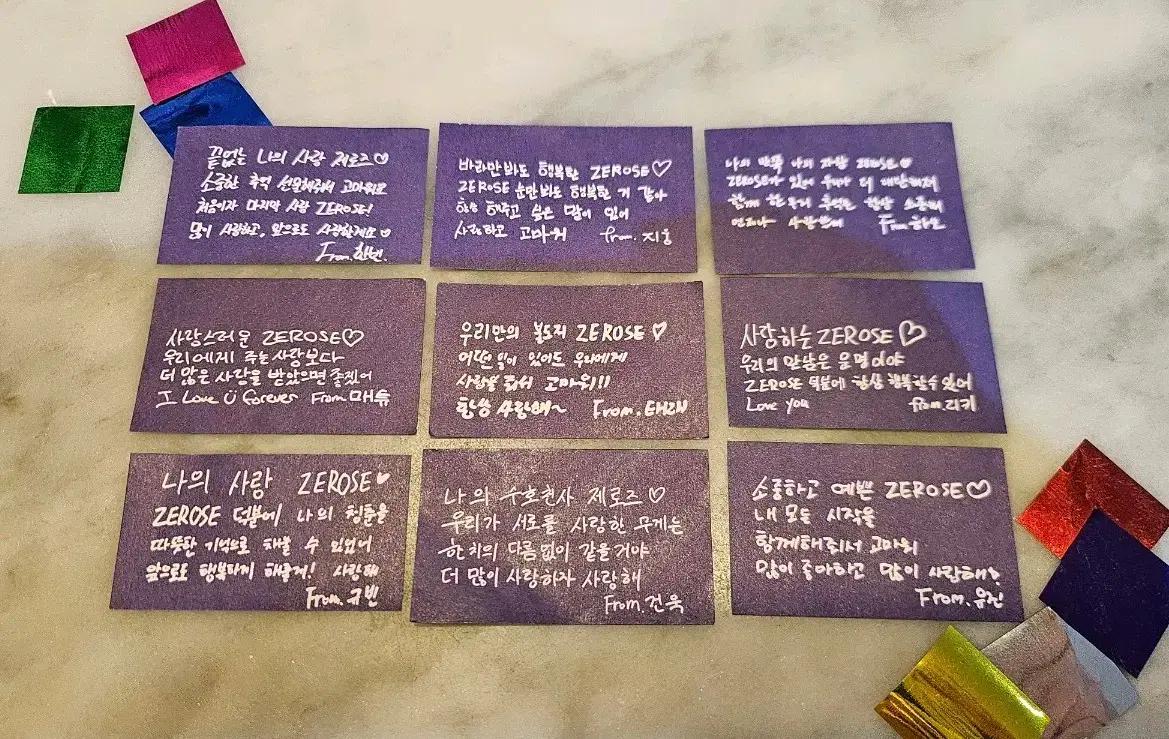 끝없는 나의 사랑 제로즈♡
소중한 추억 선물해줘서 고마워요
처음이자 마지막 사랑 ZEROSE!
많이 사랑하고, 앞으로도 사랑할게요♡
From.한빈.
바라만봐도 행복한 ZEROSE♡
ZEROSE 눈만봐도 행복한 거 같아
항상 해주고 싶은 말이 있어
사랑하고 고마워 from.지웅
나의 가족 나의 자랑 ZEROSE♡
ZEROSE가 있어 우리가 더 대단해져
함께 한 우리 추억은 항상 소중해
언제나 사랑한다 From.하오
사랑스러운 ZEROSE♡
우리에게 주는 사랑보다
더 많은 사랑을 받았으면 좋겠어
I Love U forever From매튜
우리만의 불도저 ZEROSE♡
어떤 일이 있어도 우리에게
사랑을 줘서 고마워!!
항상 사랑해~ From.태래
사랑하는 ZEROSE♡
우리의 만남은 운명이야
ZEROSE 덕분에 항상 행복할수있어
Love you from.리키
나의 사랑 ZEROSE♥
ZEROSE 덕분에 나의 청춘을
따뜻한 기억으로 채울 수 있었어
앞으로도 행복하게 해줄게! 사랑해
From.규빈
나의 수호천사 제로즈♡
우리가 서로를 사랑한 무게는
한치의 다름없이 같을거야
더 많이 사랑하자 사랑해
From.건욱
소중하고 예쁜 ZEROSE♡
내 모든 시작을
함께해줘서 고마워
많이 좋아하고 많이 사랑해!
From.유진